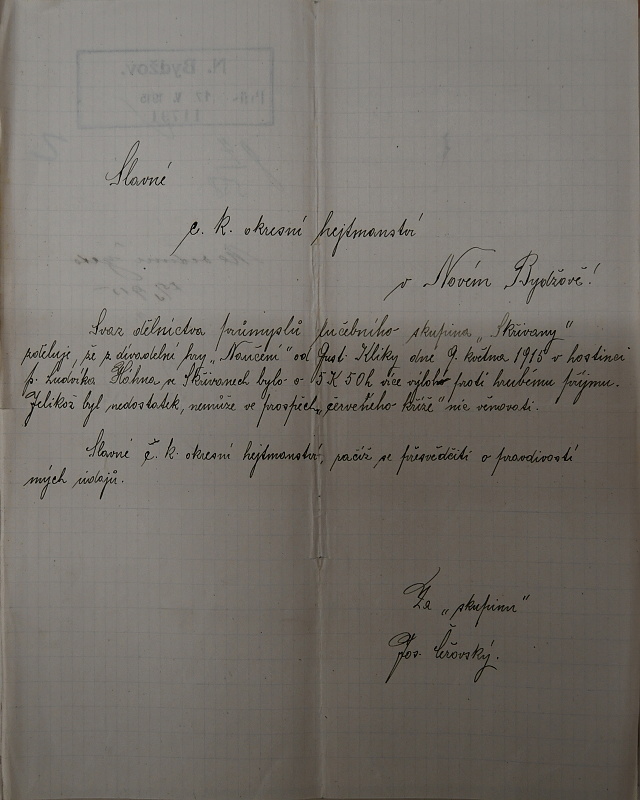 N. Bydžov.
17. V. 1915
Slavné
c. k. okresní hejtmanství
v Novém Bydžově!
Svaz dělnictva průmyslu lučebního skupina „Skřivany"
zděluje, že z divadelní hry „Naučení" od dne 9. května 1915 v hostinci
p. Ludvíka ve Skřivanech bylo o 5 K 50 h více výloh proti hrubému příjmu.
Jelikož byl nedostatek, nemůže ve prospěch „červeného kříže" nic věnovati.
Slavné č. k. okresní hejtmanství, račiž se přesvědčiti o pravdivosti
mých údajů.
Za „skupinu"
Jos.